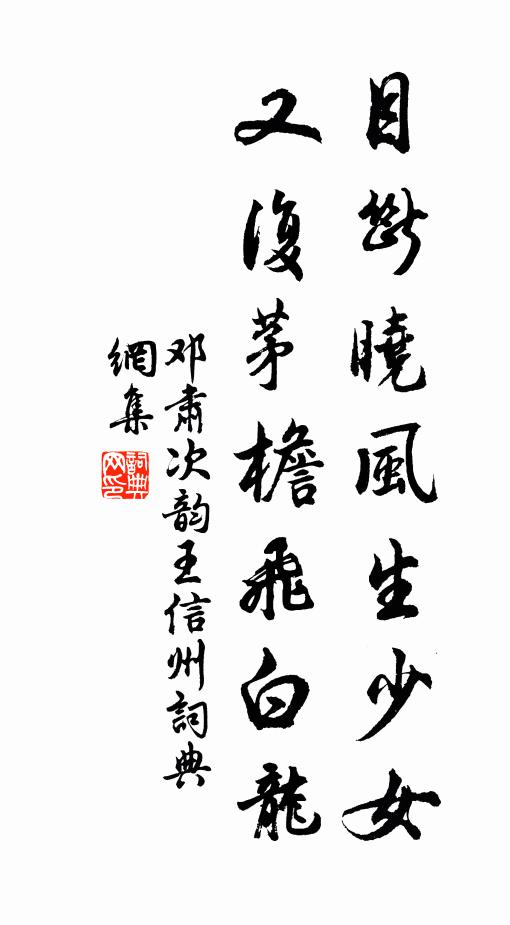 目斷曉風生少女
又復茅檐飛白龍
邓肅次韵王信州詞典
網集
詞典网印